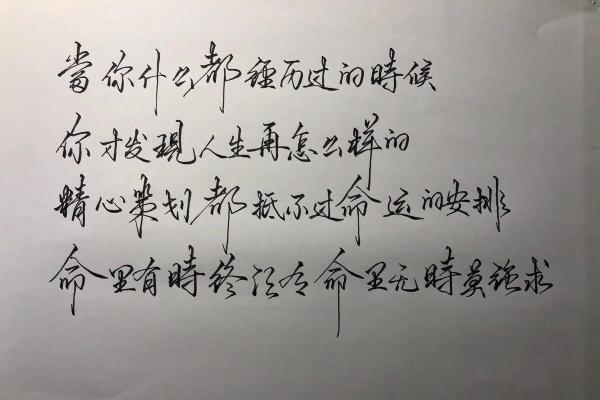 當你什么都經历过的時候
你才发現人生再怎么样的
精心策划都抵不过命运的安排
命里有時终须有命里无時莫強求